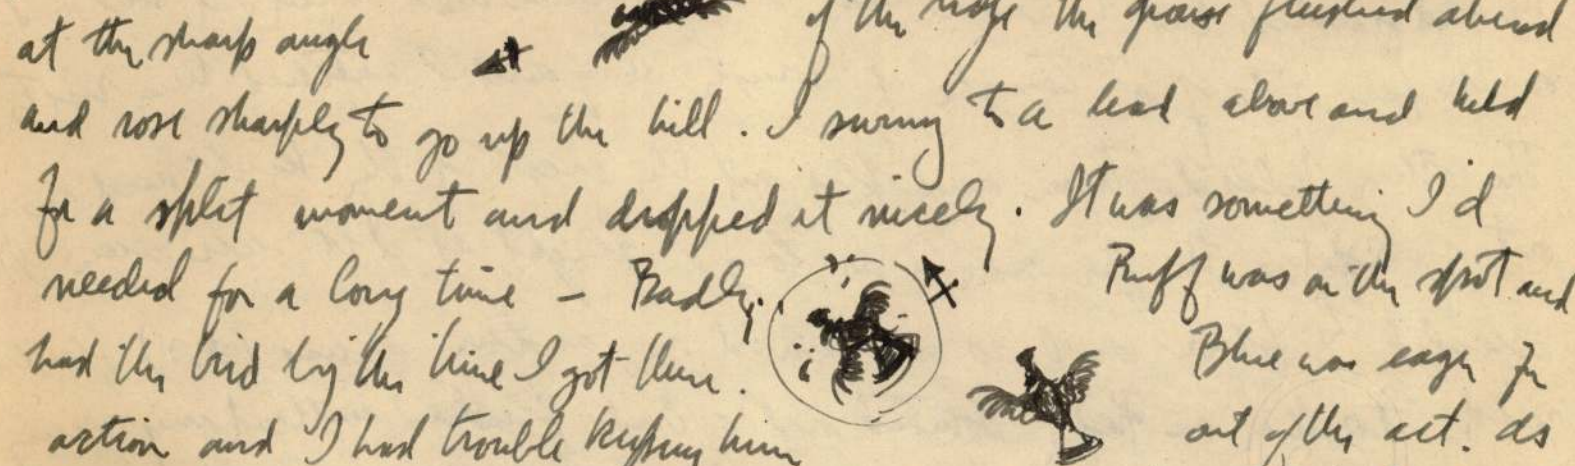 at the sharp angle of the ridge the grouse flushed ahead
and rose sharply to go up the hill. I swung to a lead above and held
for a split moment and dropped it nicely. It was something I'd
needed for a long time – Badly. Ruff was on the spot and
had the bird by the time I got there. Blue was eager for
action and I had trouble keeping him out of the act. As